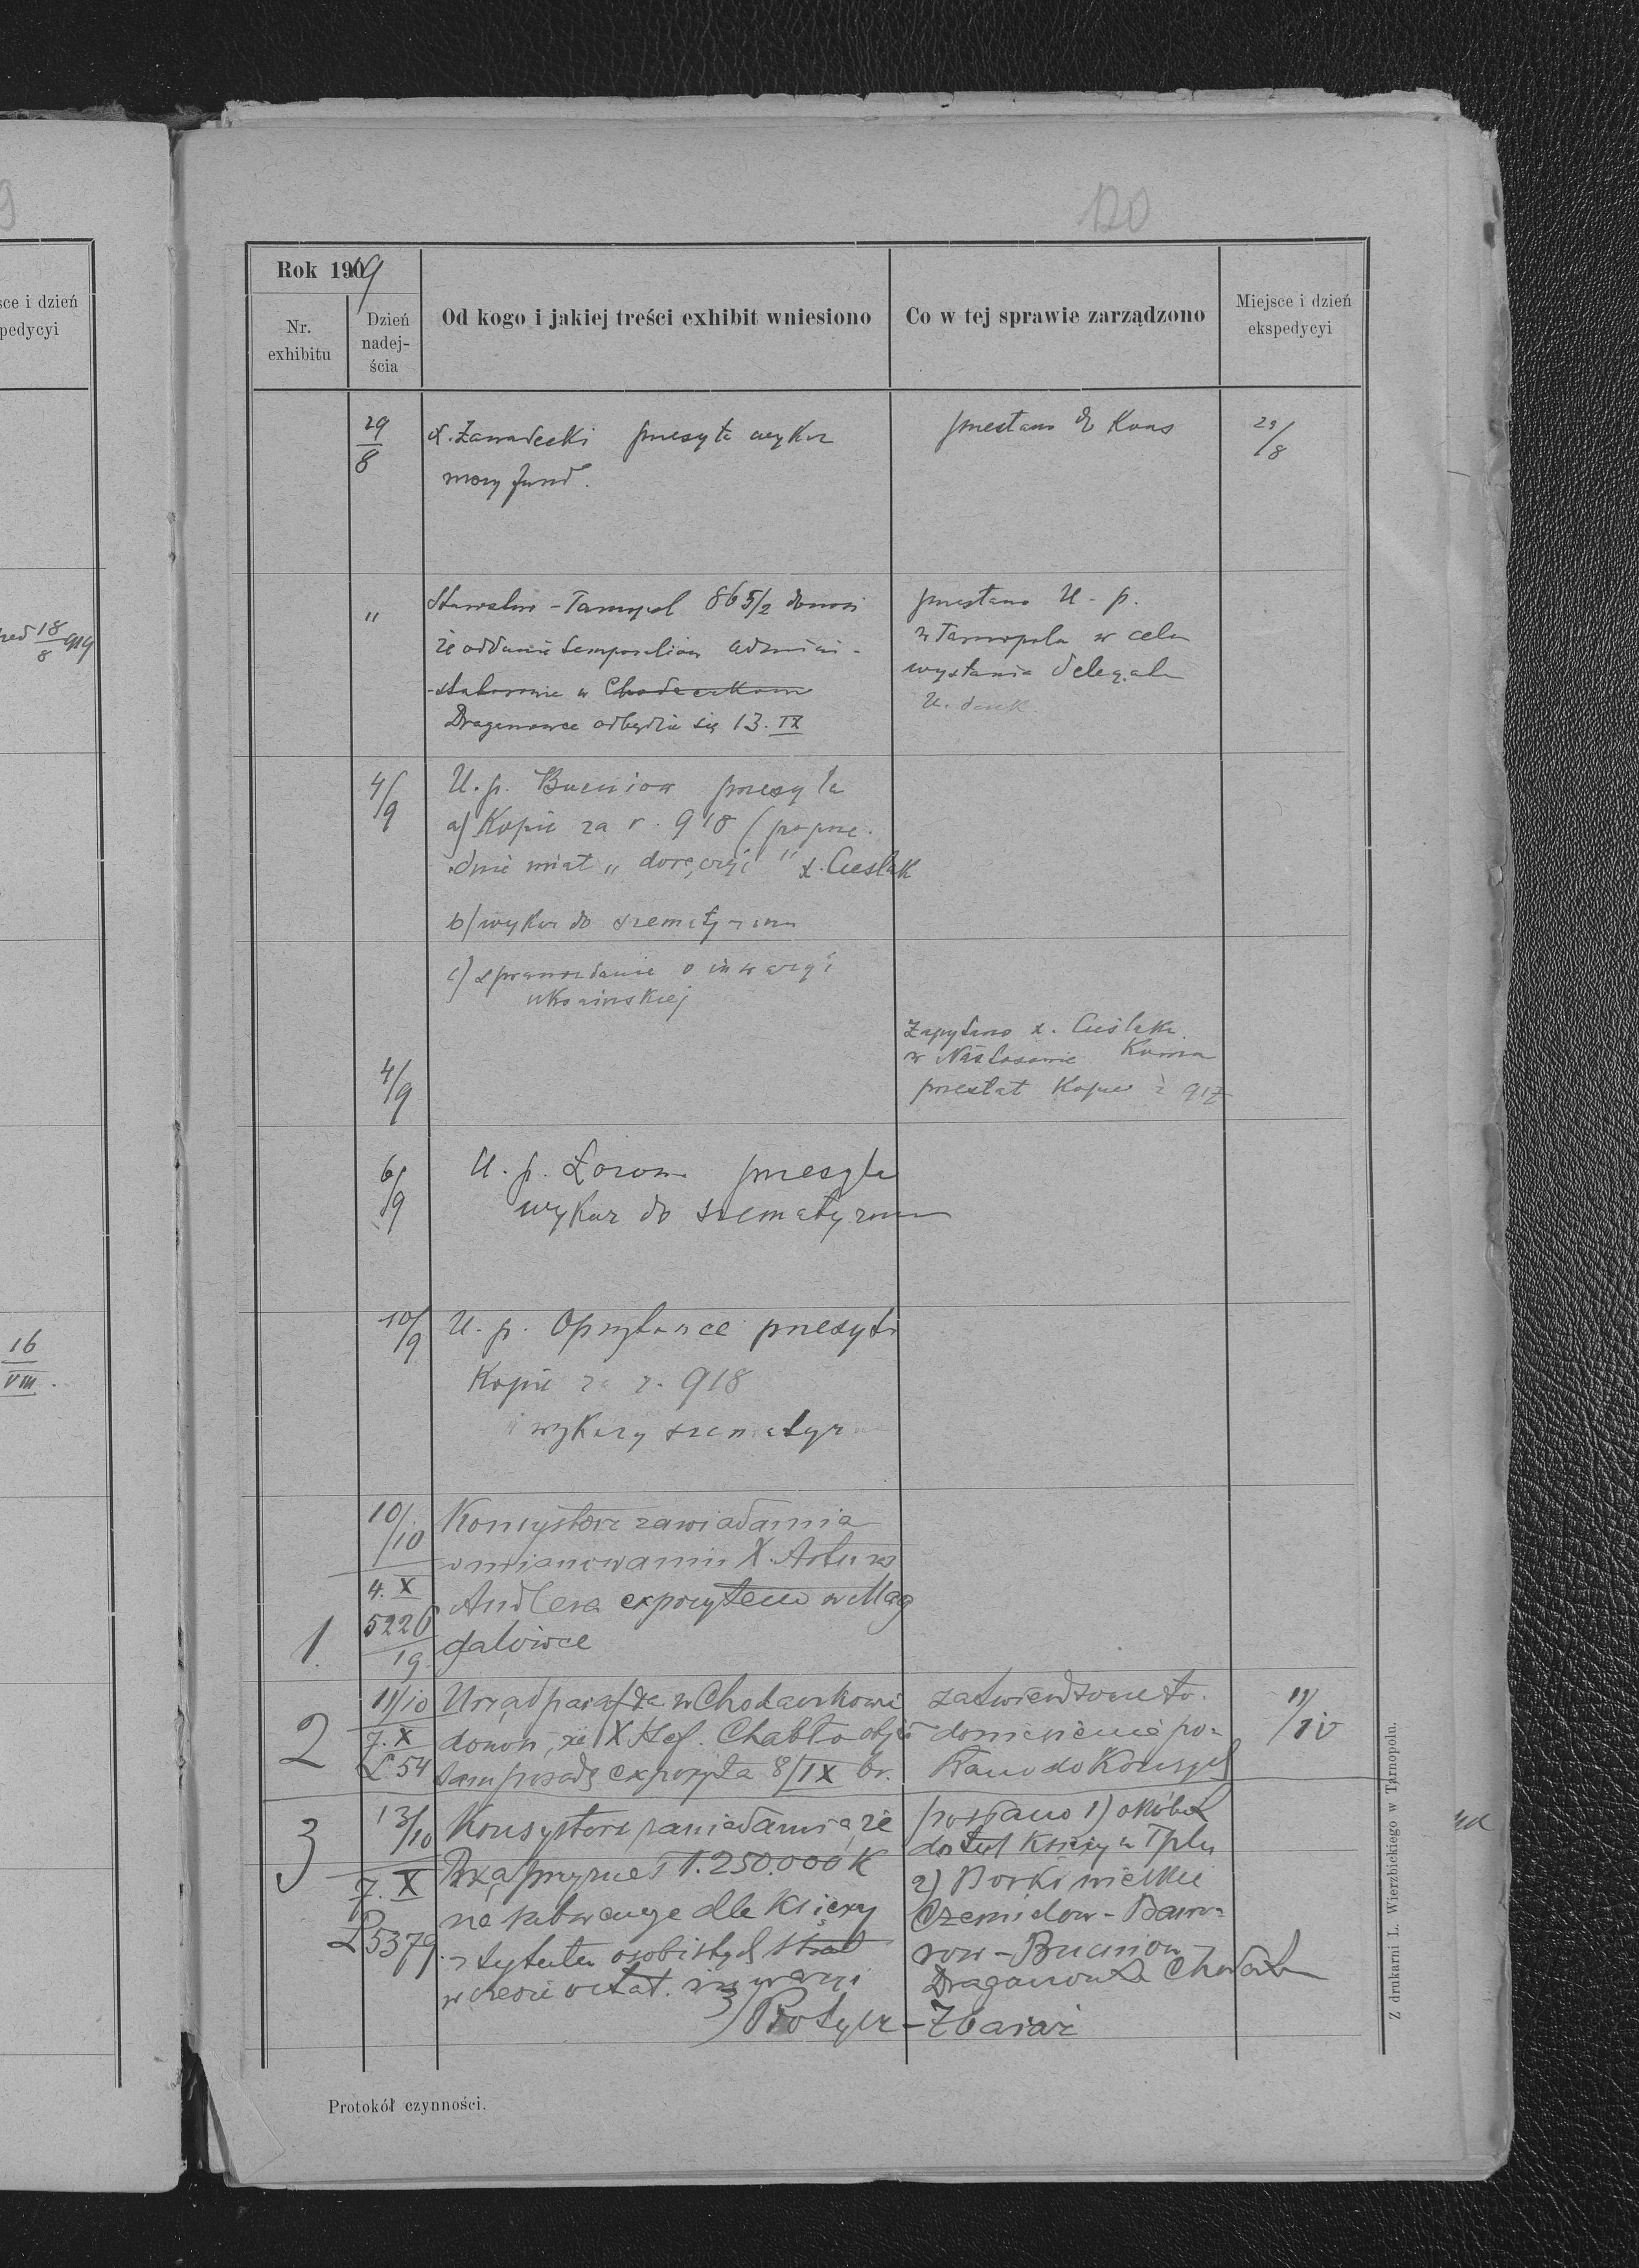 120
Rok 1919
Nr. exhibitu
Dzień nadejścia
Od kogo i jakiej treści exhibit wniesiono
Co w tej sprawie zarządzono
Miejsce i dzień ekspedycyi
29/8
x. Zawadecki przesyła wykaz
mszy fund.
przesłano do Kons
29/8
"
Starostwo - Tarnopol 865/2 donosi
że oddanie temporaliów admini-
-stratorowi w Chodaczkowie
Draganowce odbędzie się 13. IX
przesłano U. p.
w Tarnopolu w celu
wysłania delegata
U. dziek.
4/9
U. p. Bucniow przesyła
a) Kopie za r. 918 (poprze-
dnie miał „doręczyć" x. Cieślak
b) wykaz do szematyzmu
c) sprawozdanie o inwazyi
ukraińskiej
4/9
Zapytano x. Cieślaka
w
przesłał Kopie z 917
6/9
U. p. Łozowa przesyła
wykaz do szematyzmu
10/9
U. p. Opryłowce przesyła
Kopie za r. 918
i wykazy szematyz
1.
10/10
4. X
5226
19
Konsystorz zawiadamia
o mianowaniu X. Artura
Andlera expozytem w Mag
dalówce
2
11/10
7. X
L 54
Urząd paraf. w Chodaczkowie
donosi, że X Stef. Chabło objął
tam posadę expozyta 8/IX br.
zatwierdzone to
doniesienie po-
słano do Konsyst
11/10
3
13/10
7. X
L 5379
Konsystorz zawiadamia że
Rząd przyznał 1.250.000 K
na subwencye dla Księży
z tytułu osobistych strat
w czasie ostat. inwazyi
posłano 1) okólnik
do tut Księży w Tplu
2) Borki wielkie
Czernielow - Bawo-
row - Bucniow -
Draganowka Chodacz
3) Protyw - Zbaraż
Protokół czynności.
Z drukarni L. Wierzbickiego w Tarnopolu.
sce i dzień
pedycyi
18/8 919
16
VIII.